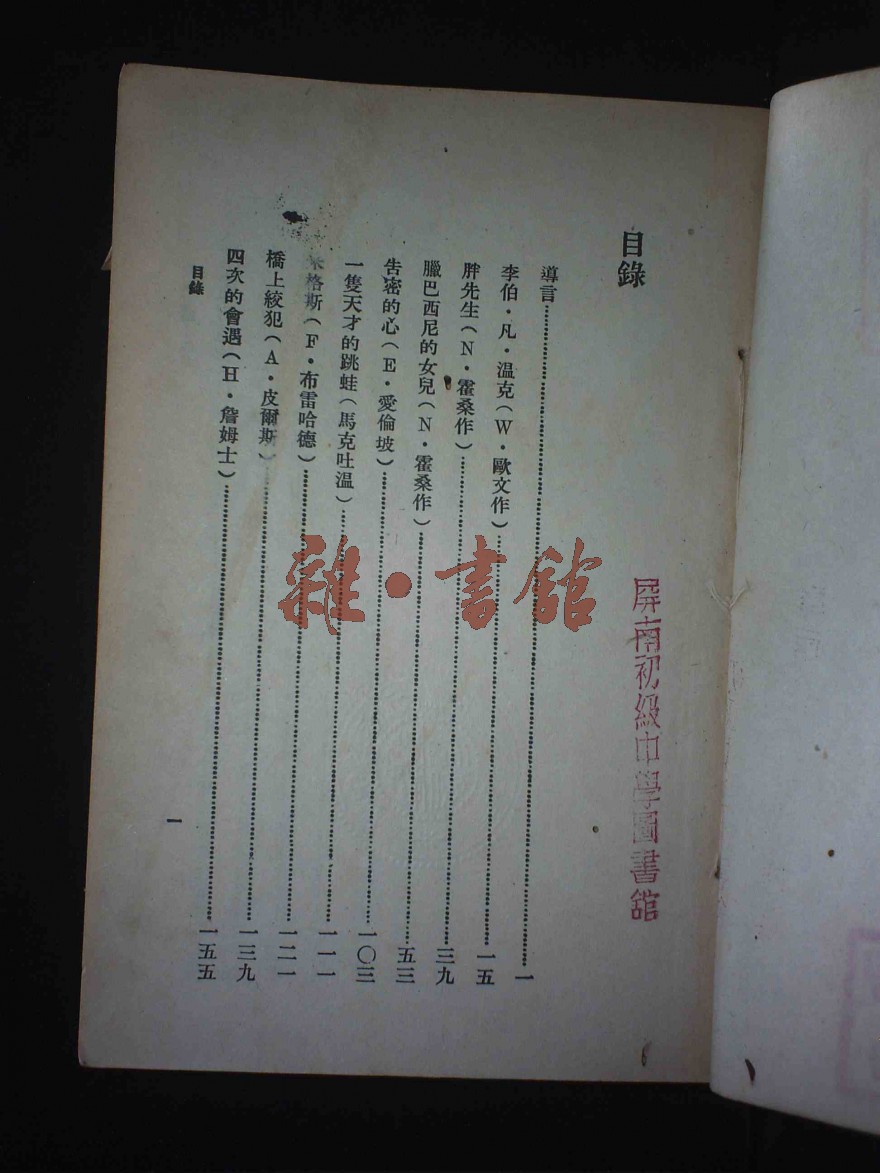 目錄
導言……………………一
李伯·凡·温克(W·歐文作)……………………一五
胖先生(N·霍桑作)……………………三九
臘巴西尼的女兒(N·霍桑作)……………………五三
告密的心(E·愛倫坡)……………………一〇三
一隻天才的跳蛙(馬克吐温)……………………一一一
格斯(F·布雷哈德)……………………一二一
橋上絞犯(A·皮爾斯)……………………一三九
四次的會遇(H·詹姆士)……………………一五五
目錄
一
屏南初級中學圖書館
雜·書館